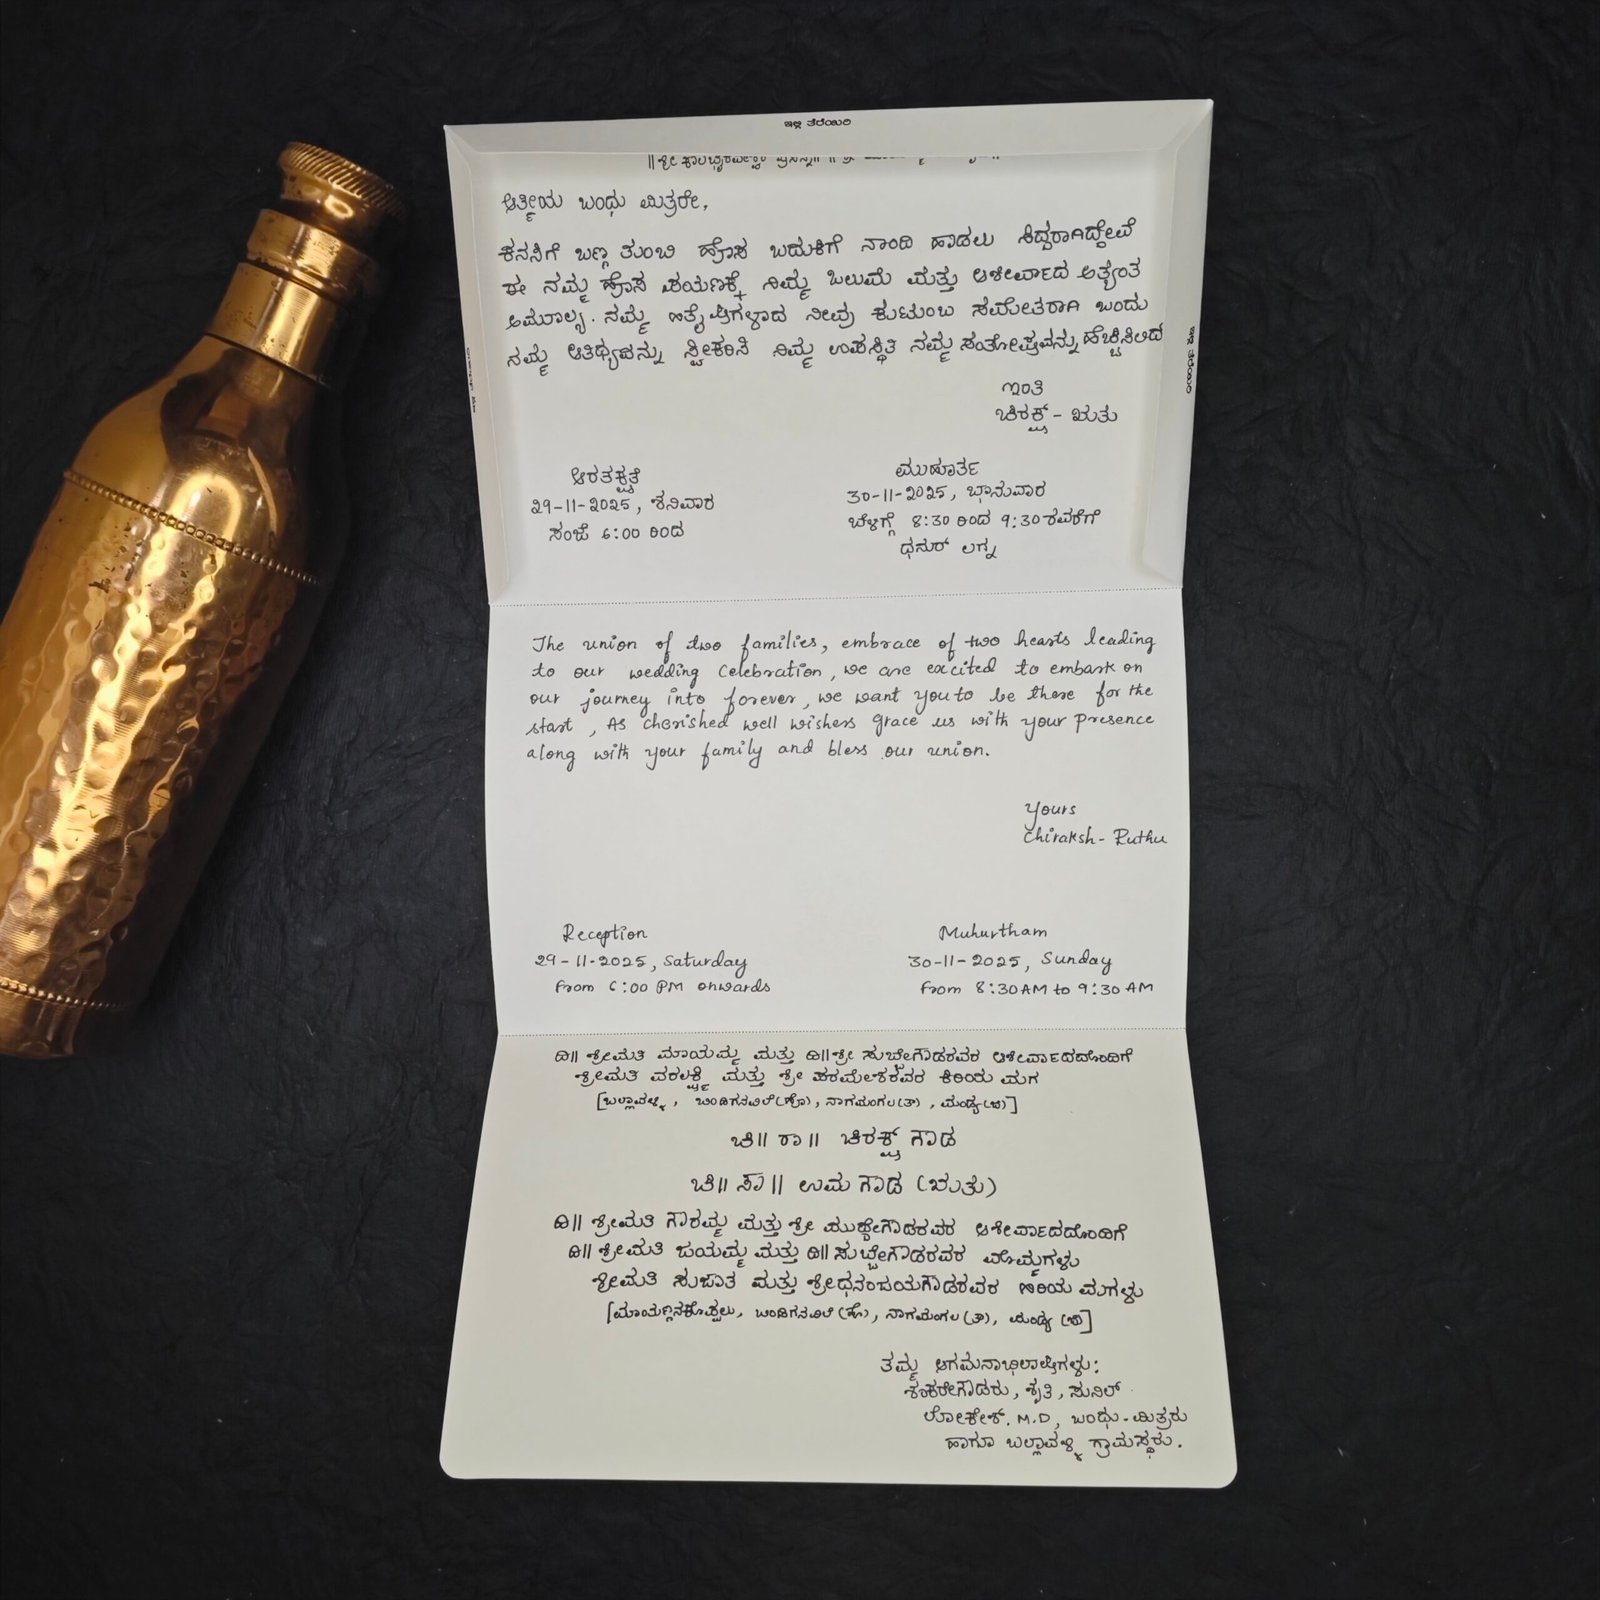 ಇಲ್ಲಿ ತೆರೆಯಿರಿ
ಆತ್ಮೀಯ ಬಂಧು ಮಿತ್ರರೇ,
ಕನಸಿಗೆ ಬಣ್ಣ ತುಂಬಿ ಹೊಸ ಬದುಕಿಗೆ ನಾಂದಿ ಹಾಡಲು ಸಿದ್ದರಾಗಿದ್ದೇವೆ
ಈ ನಮ್ಮ ಹೊಸ ಪಯಣಕ್ಕೆ ನಿಮ್ಮ ಒಲುಮೆ ಮತ್ತು ಆಶೀರ್ವಾದ ಅತ್ಯಂತ
ಅಮೂಲ್ಯ. ನಮ್ಮ ಹಿತೈಷಿಗಳಾದ ನೀವು ಕುಟುಂಬ ಸಮೇತರಾಗಿ ಬಂದು
ನಮ್ಮ ಆತಿಥ್ಯವನ್ನು ಸ್ವೀಕರಿಸಿ ನಿಮ್ಮ ಉಪಸ್ಥಿತಿ ನಮ್ಮ ಸಂತೋಷವನ್ನು ಹೆಚ್ಚಿಸಲಿದೆ
ಇಂತಿ
ಚಿರಕ್ಷ್ - ಋತು
ಆರತಕ್ಷತೆ
29-11-2025, ಶನಿವಾರ
ಸಂಜೆ 6:00 ರಿಂದ
ಮುಹೂರ್ತ
30-11-2025, ಭಾನುವಾರ
ಬೆಳಗ್ಗೆ 8:30 ರಿಂದ 9:30 ರವರೆಗೆ
ಧನುರ್ ಲಗ್ನ
The union of two families, embrace of two hearts leading
to our wedding Celebration, we are excited to embark on
our journey into forever, we want you to be there for the
start, As cherished well wishers grace us with your presence
along with your family and bless our union.
Yours
Chiraksh - Ruthu
Reception
29-11-2025, Saturday
From 6:00 PM onwards
Muhurtham
30-11-2025, Sunday
From 8:30 AM to 9:30 AM
ದಿ|| ಶ್ರೀಮತಿ ಮಾಯಮ್ಮ ಮತ್ತು ದಿ|| ಶ್ರೀ ಸುಬ್ಬೇಗೌಡರವರ ಆಶೀರ್ವಾದದೊಂದಿಗೆ
ಶ್ರೀಮತಿ ವರಲಕ್ಷ್ಮಿ ಮತ್ತು ಶ್ರೀ ಪರಮೇಶರವರ ಕಿರಿಯ ಮಗ
[ಬಲ್ಲಾವಳ್ಳಿ, ಬಿಂಡಿಗನವಿಲೆ(ಹೋ), ನಾಗಮಂಗಲ(ತಾ), ಮಂಡ್ಯ(ಜಿ)]
ಚಿ|| ರಾ|| ಚಿರಕ್ಷ್ ಗೌಡ
ಚಿ|| ಸೌ|| ಉಮ ಗೌಡ (ಋತು)
ದಿ|| ಶ್ರೀಮತಿ ಗೌರಮ್ಮ ಮತ್ತು ಶ್ರೀ ಮುದ್ದೇಗೌಡರವರ ಆಶೀರ್ವಾದದೊಂದಿಗೆ
ದಿ|| ಶ್ರೀಮತಿ ಜಯಮ್ಮ ಮತ್ತು ದಿ|| ಸುಬ್ಬೇಗೌಡರವರ ಮೊಮ್ಮಗಳು
ಶ್ರೀಮತಿ ಸುಜಾತ ಮತ್ತು ಶ್ರೀಧನಂಜಯಗೌಡರವರ ಹಿರಿಯ ಮಗಳು
[ಮಾಯಣ್ಣನಕೊಪ್ಪಲು, ಬಿಂಡಿಗನವಿಲೆ(ಹೋ), ನಾಗಮಂಗಲ(ತಾ), ಮಂಡ್ಯ(ಜಿ)]
ತಮ್ಮ ಆಗಮನಾಭಿಲಾಷಿಗಳು:
ಶಂಕರೇಗೌಡರು, ಶೃತಿ, ಸುನಿಲ್
ಲೋಕೇಶ್. M.D, ಬಂಧು-ಮಿತ್ರರು
ಹಾಗೂ ಬಲ್ಲಾವಳ್ಳಿ ಗ್ರಾಮಸ್ಥರು.